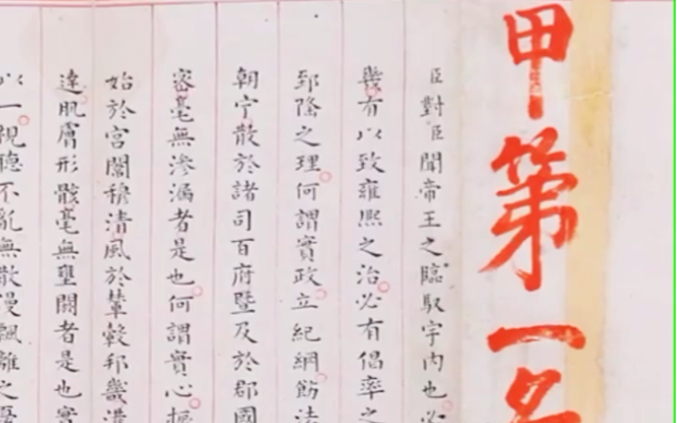 甲第一名
臣對臣聞帝王之臨馭宇內也必
與有以致雍熙之治必有倡率之
郅隆之理何謂實政立紀綱飭法
朝宁散於諸司百府暨及於郡國
密毫無滲漏者是也何謂實心振
始於宮闈穆清風於輦轂邦畿溥
達肌膚形骸毫無壅閼者是也實
以一視聽不亂無散漫飄離之憂